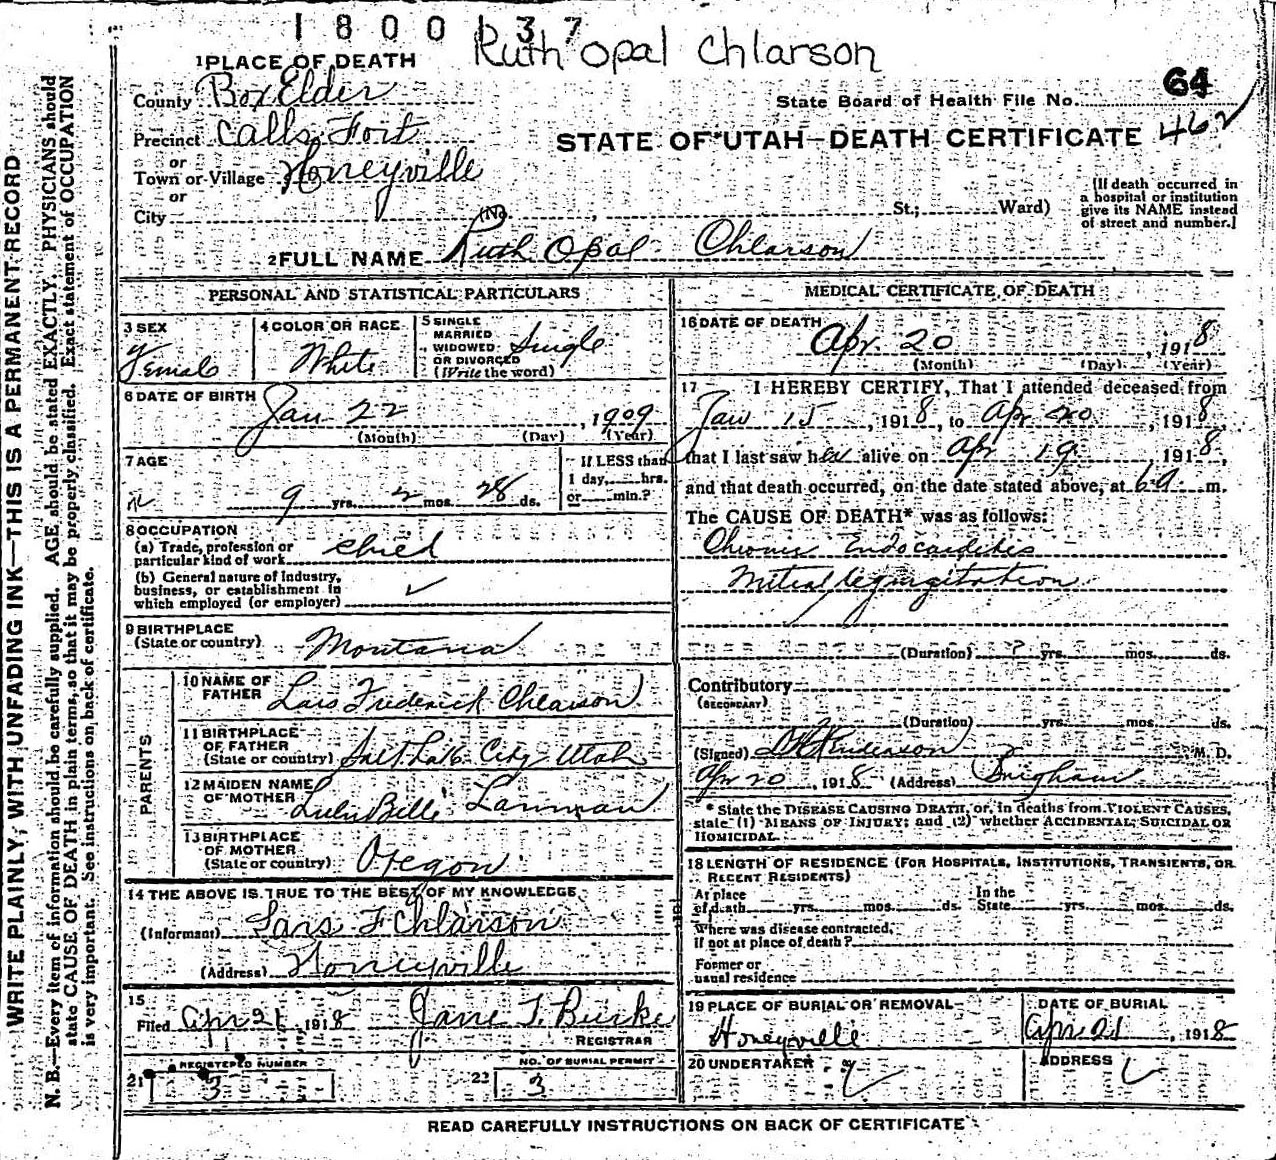 1800137
Ruth Opal Chlarson
1 PLACE OF DEATH
County Box Elder
64
State Board of Health File No.
Precinct Calls Fort
STATE OF UTAH—DEATH CERTIFICATE 462
or
Town or Village Honeyville
or
City (No. , St.; Ward)
(If death occurred in
a hospital or institution
give its NAME instead
of street and number.]
2 FULL NAME Ruth Opal Chlarson
PERSONAL AND STATISTICAL PARTICULARS
3 SEX
Female
4 COLOR OR RACE
White
5 SINGLE
MARRIED
WIDOWED
OR DIVORCED
(Write the word)
Single
6 DATE OF BIRTH
Jan 22, 1909
(Month) (Day) (Year)
7 AGE
9 yrs. 2 mos. 28 ds.
If LESS than
1 day, hrs.
or min.?
8 OCCUPATION
(a) Trade, profession or
particular kind of work Child
(b) General nature of Industry,
business, or establishment in
which employed (or employer)
9 BIRTHPLACE
(State or country) Montana
PARENTS
10 NAME OF
FATHER Lars Frederick Chlarson
11 BIRTHPLACE
OF FATHER
(State or country) Salt Lake City Utah
12 MAIDEN NAME
OF MOTHER Lulu Belle Lanman
13 BIRTHPLACE
OF MOTHER
(State or country) Oregon
14 THE ABOVE IS TRUE TO THE BEST OF MY KNOWLEDGE
(Informant) Lars F Chlarson
(Address) Honeyville
15
Filed Apr 21, 1918 Jane T. Burke
REGISTRAR
21 REGISTERED NUMBER
3
22 NO. OF BURIAL PERMIT
3
MEDICAL CERTIFICATE OF DEATH
16 DATE OF DEATH
Apr. 20, 1918
(Month) (Day) (Year)
17 I HEREBY CERTIFY, That I attended deceased from
Jan 15, 1918, to Apr 20, 1918,
that I last saw her alive on Apr 19, 1918,
and that death occurred, on the date stated above, at 6 a m.
The CAUSE OF DEATH* was as follows:
Chronic Endocarditis
Mitral regurgitation
(Duration) ? yrs. mos. ds.
Contributory
(SECONDARY)
(Duration) yrs. mos. ds.
(Signed) M. D.
Apr 20, 1918 (Address) Brigham
* State the DISEASE CAUSING DEATH, or, in deaths from VIOLENT CAUSES,
state (1) MEANS OF INJURY; and (2) whether ACCIDENTAL, SUICIDAL OR
HOMICIDAL.
18 LENGTH OF RESIDENCE (FOR HOSPITALS, INSTITUTIONS, TRANSIENTS, OR
RECENT RESIDENTS)
At place
of death yrs. mos. ds.
In the
State yrs. mos. ds.
Where was disease contracted,
if not at place of death?
Former or
usual residence
19 PLACE OF BURIAL OR REMOVAL
Honeyville
DATE OF BURIAL
Apr 21, 1918
20 UNDERTAKER
ADDRESS
READ CAREFULLY INSTRUCTIONS ON BACK OF CERTIFICATE
WRITE PLAINLY, WITH UNFADING INK—THIS IS A PERMANENT RECORD
N. B.—Every item of information should be carefully supplied. AGE should be stated EXACTLY. PHYSICIANS should
state CAUSE OF DEATH in plain terms, so that it may be properly classified. Exact statement of OCCUPATION
is very important. See instructions on back of certificate.